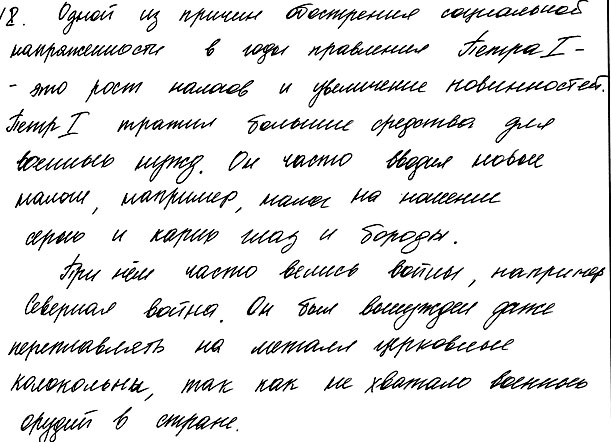 18. Одной из причин обострения социальной
напряженности в годы правления Петра I -
- это рост налогов и увеличение повинностей.
Петр I тратил большие средства для
военных нужд. Он часто вводил новые
налоги, например, налог на ношение
серых и карих глаз и бороды.
При нём часто велись войны, например
Северная война. Он был вынужден даже
переплавлять на металл церковные
колокольны, так как не хватало военных
орудий в стране.